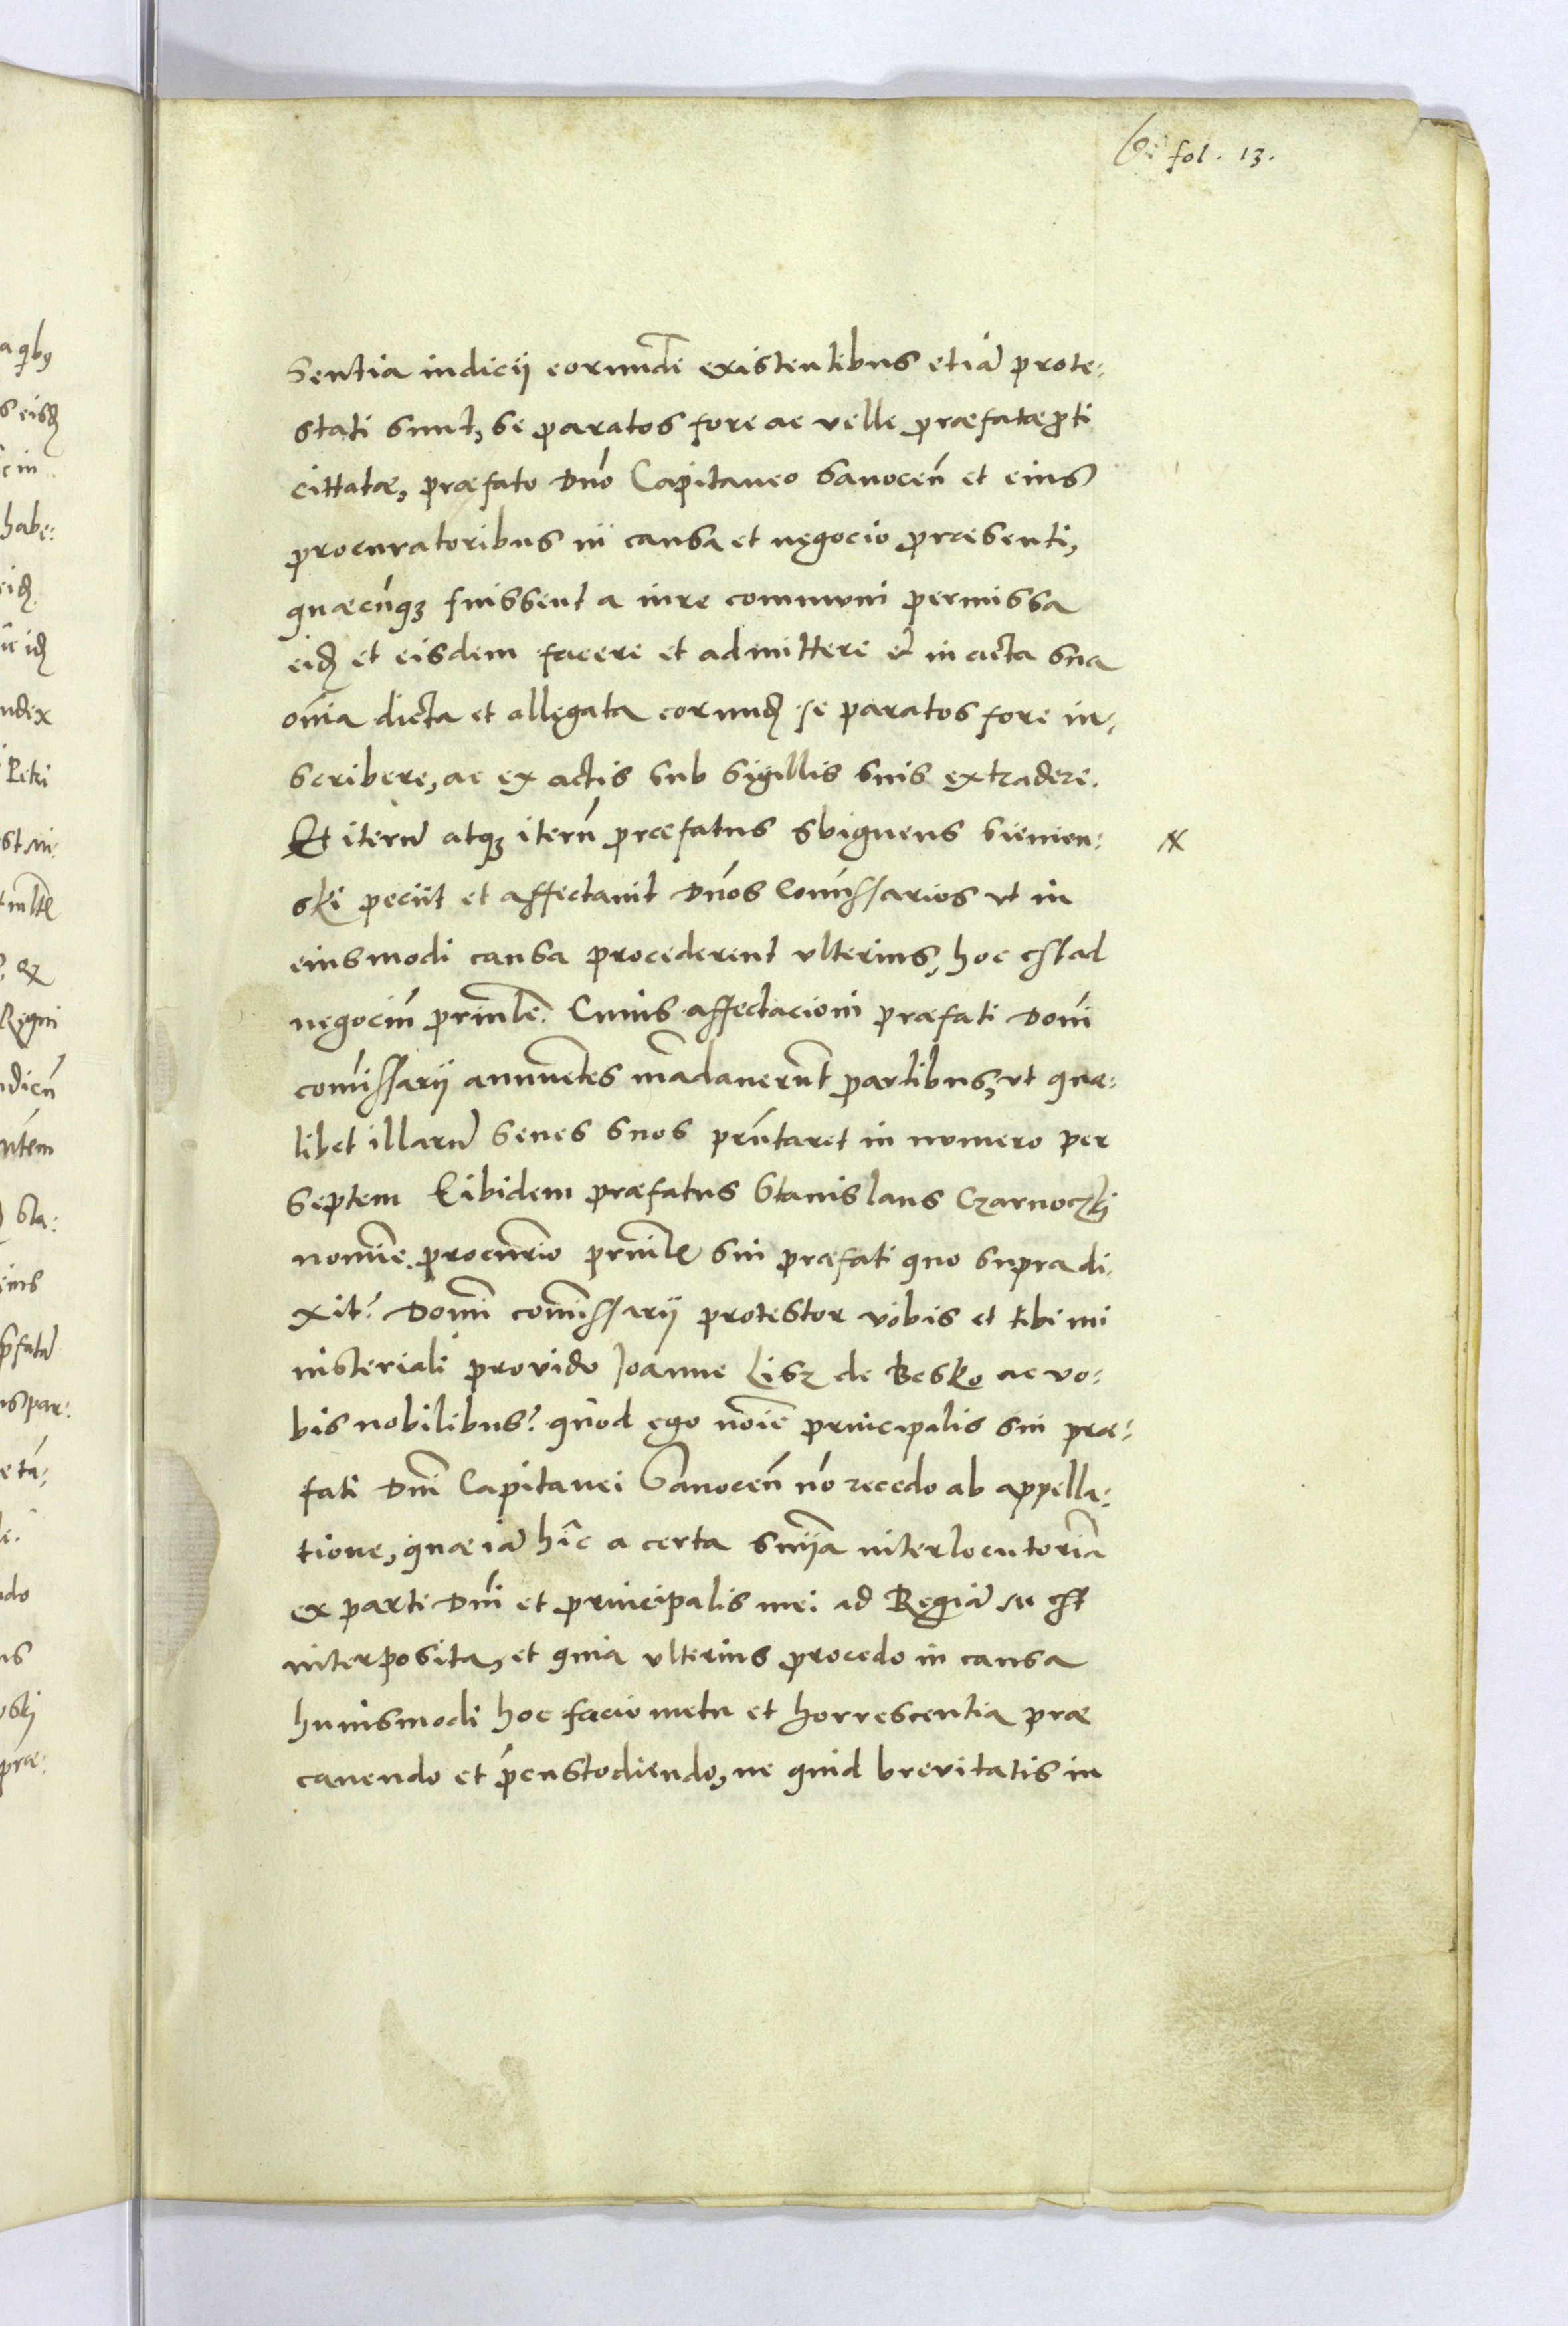 fol. 13.
sentia iudicii eorundē existentibus etiā prote-
stati sunt, se paratos fore ac velle praefatae pti
cittatae, praefato Dno Capitaneo Sanocen̄ et eius
procuratoribus in causa et negocio praesenti,
quaecūq3 fuissent a iure communi permissa
eid et eisdem facere et admittere et in acta sua
oīna dicta et allegata eorund se paratos fore in-
scribere, ac ex actis sub sigillis suis extradere.
Et iterū atq3 iterū praefatus Sbigneus Siemien-
ski peciit et affectavit Dnos Comīssarios ut in
eiusmodi causa procederent ulterius, hoc est ad
negociū prinlē. Cuius affectacioni praefati Doni
comīssarii annuētes mādaverūt partibus, ut quae-
libet illarū senes suos prn̄taret in numero per
septem Et ibidem praefatus Stanislaus Czarnoczki
nomīe procurīo prinlis sui praefati quo supra di-
xit? Domī comīssarii protestor vobis et tibi mi
nisteriali provido Joanne Lisz de Besko ac vo-
bis nobilibus? quod ego noīe principalis sui prae-
fati Dnī Capitanei Sanocen̄ nō recedo ab appella-
tione, quae iā hīc a certa snīia interlocutoria
ex parte Dnī et principalis mei ad Regiā M est
interposita, et quia ulterius procedo in causa
huiusmodi hoc facio metu et horrescentia prae
cavendo et p̄custodiendo, ne quid brevitatis in
a qibus
s eisd
habe-
eid
ndex
Petri
Regni
ntem
Sta-
spar-
do
prae-